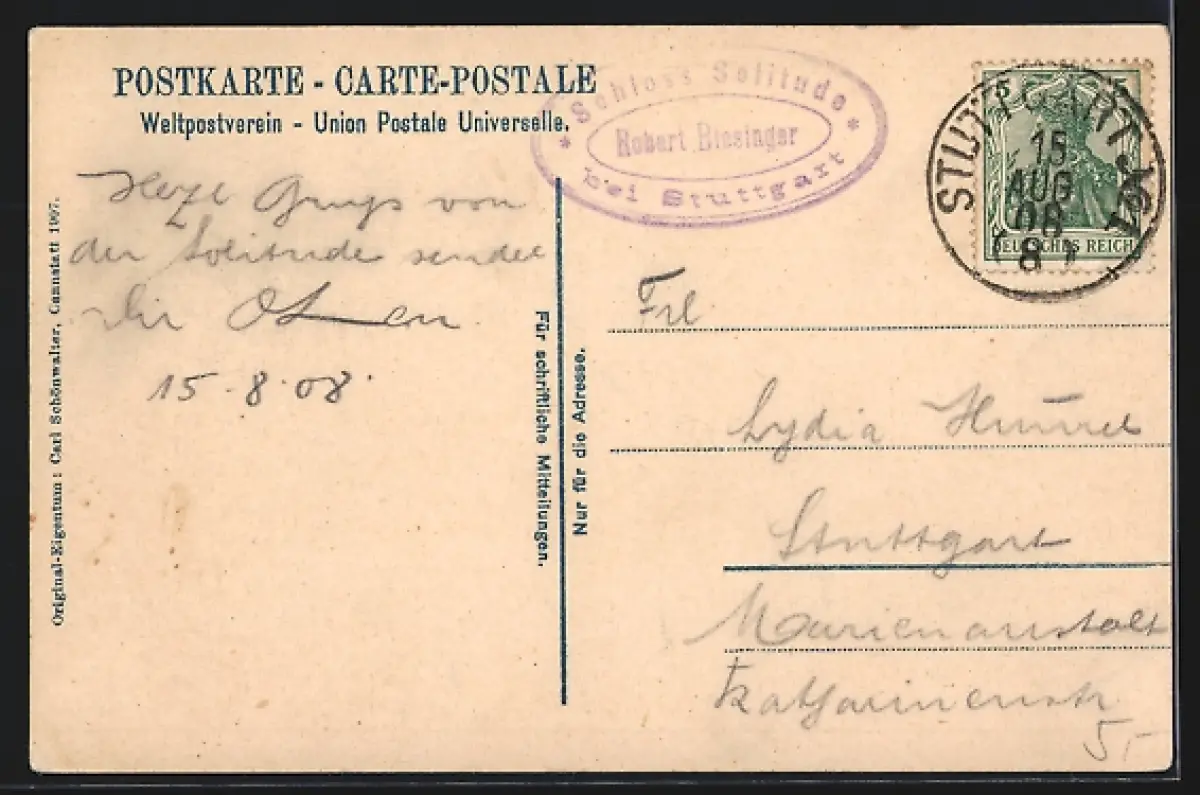 POSTKARTE - CARTE-POSTALE
Weltpostverein - Union Postale Universelle.
* Schloss Solitude *
Robert Biesinger
bei Stuttgart
STUTTGART
15
AUG
08
8
DEUTSCHES REICH
5
Herzl Gruss von
der Solitude sendet
Dir
15 - 8 - 08
Original-Eigentum : Carl Schönwalter, Cannstatt 1907.
Für schriftliche Mitteilungen.
Nur für die Adresse.
Frl
Lydia
Stuttgart
Marienanstalt
Katharinenstr
5,-